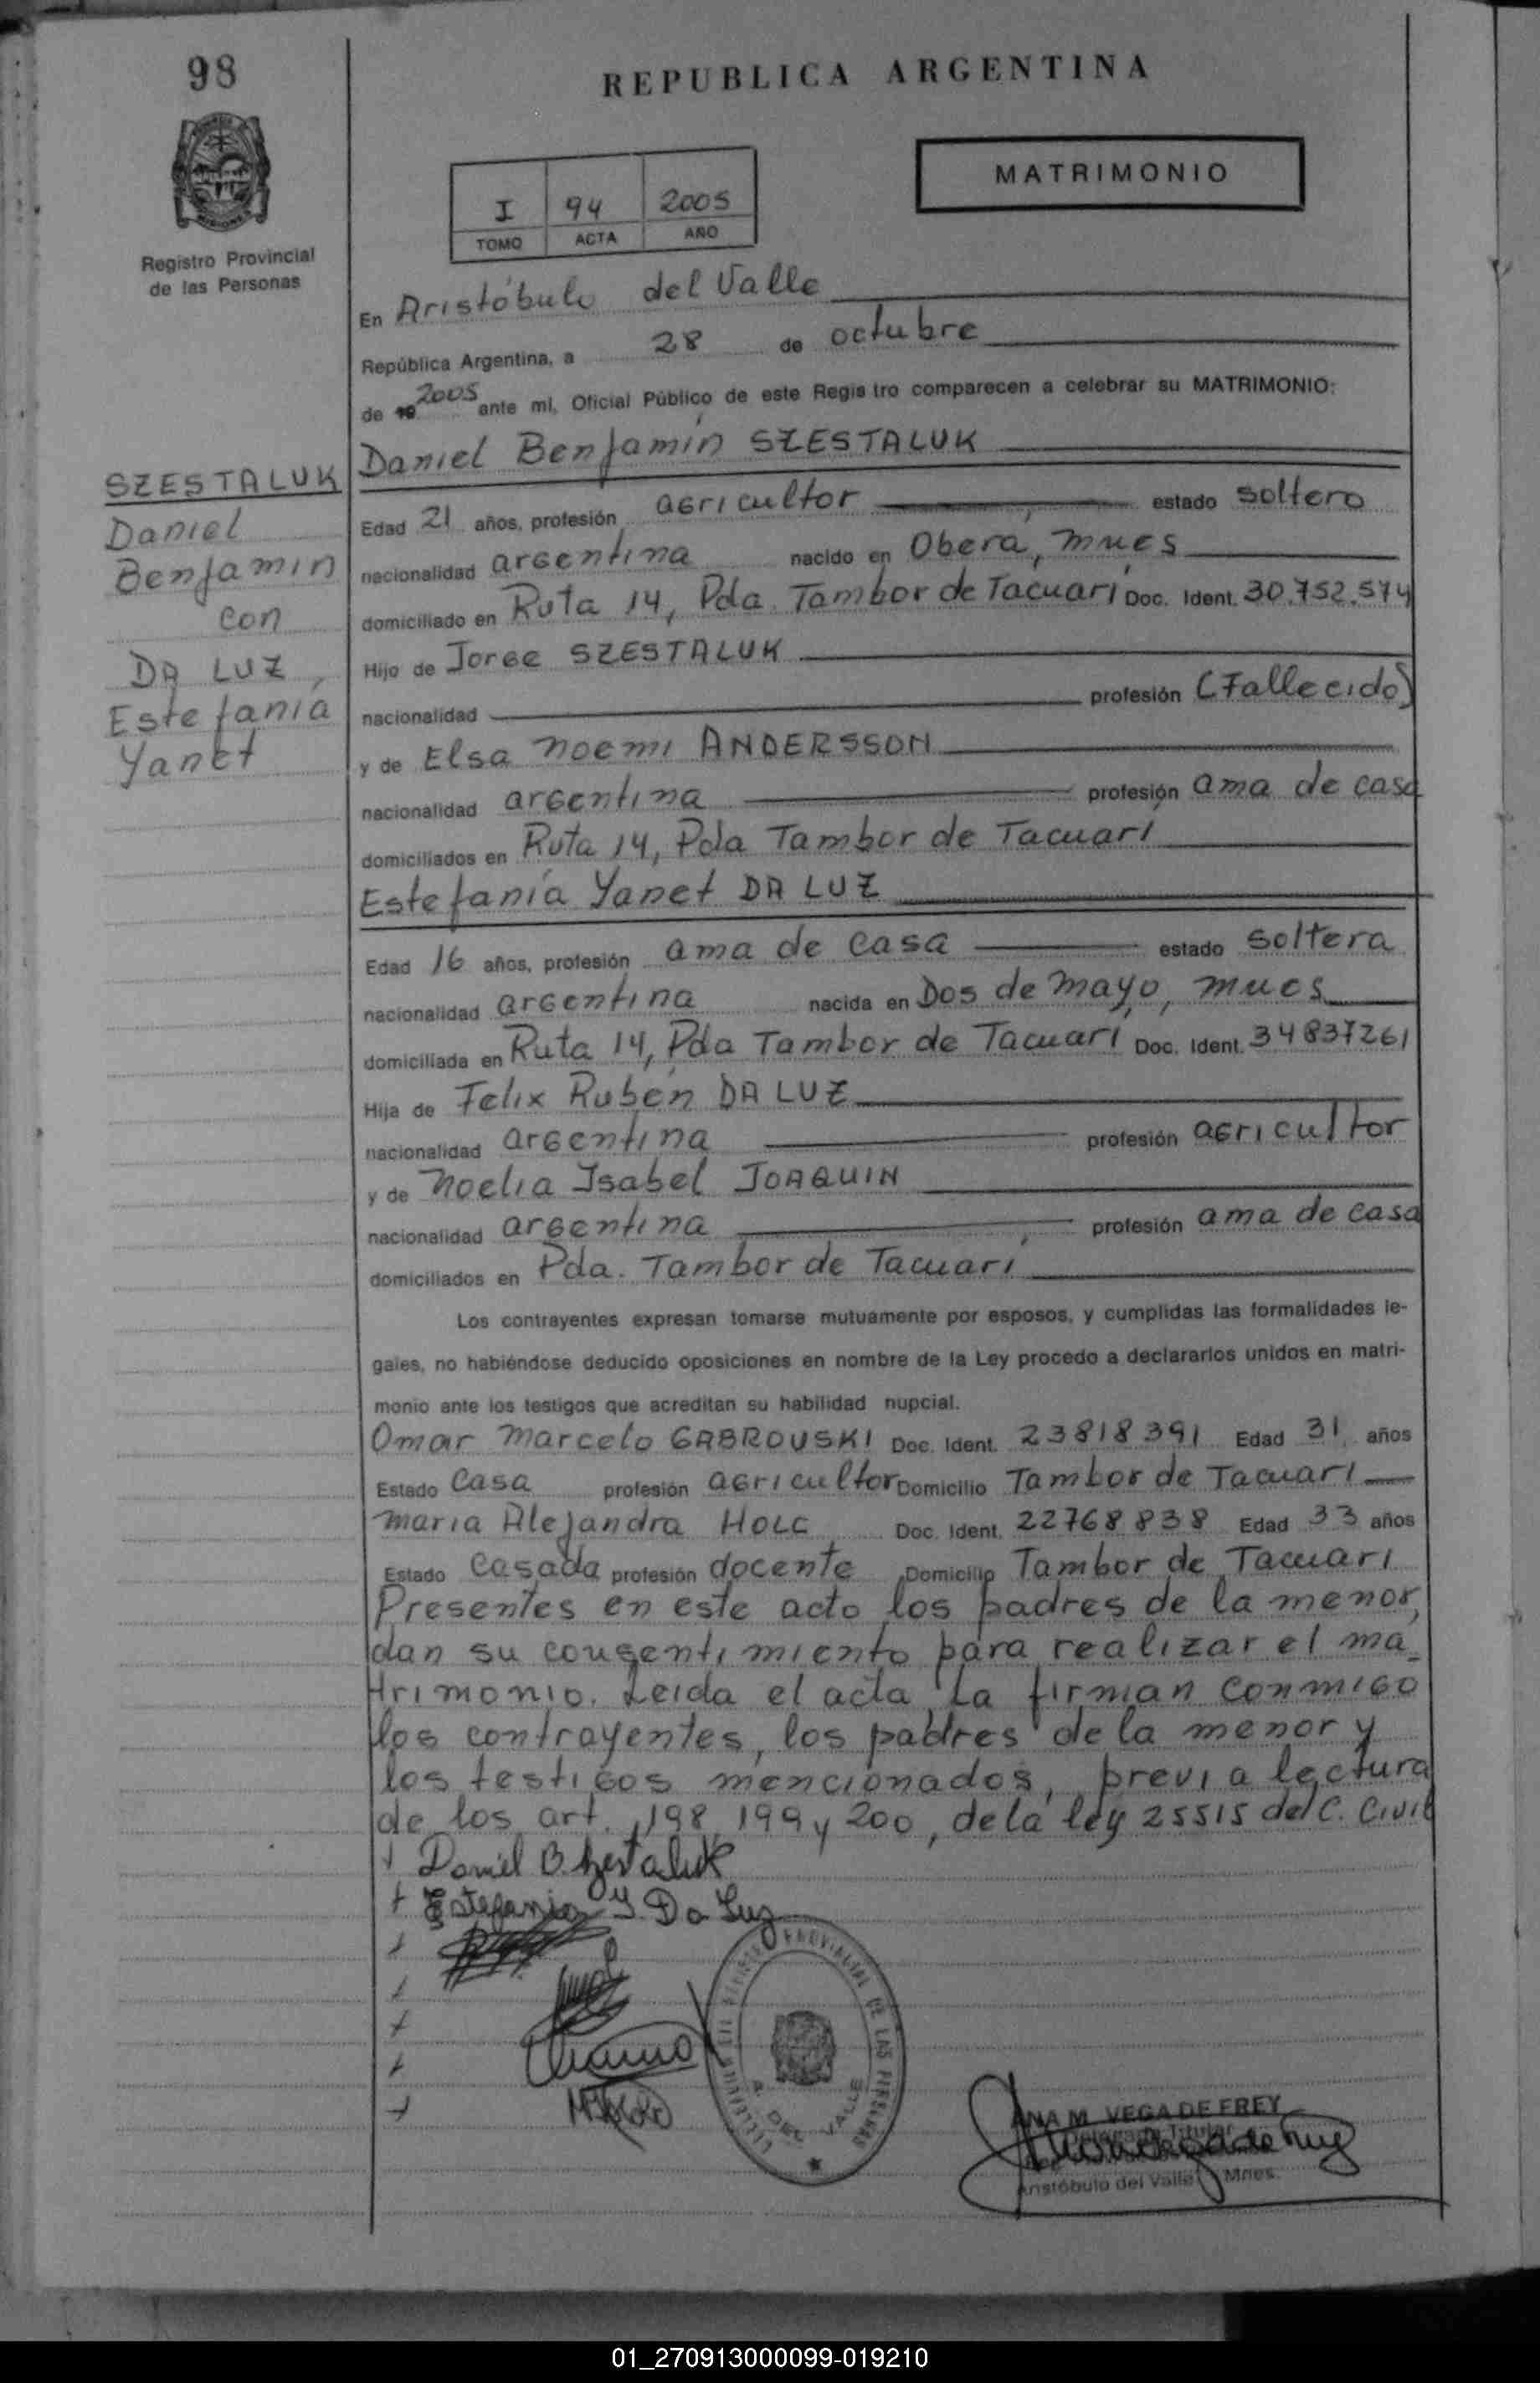 98
REPUBLICA ARGENTINA
MATRIMONIO
I 94 2005
TOMO ACTA AÑO
Registro Provincial
de las Personas
En Aristóbulo del Valle
República Argentina, a 28 de octubre
de 19 2005 ante mi, Oficial Público de este Registro comparecen a celebrar su MATRIMONIO:
Daniel Benjamín SZESTALUK
SZESTALUK
Daniel
Benjamin
con
DA LUZ,
Estefanía
Yanet
Edad 21 años, profesión agricultor estado soltero
nacionalidad argentina nacido en Obera, mnes
domiciliado en Ruta 14, Pda. Tambor de Tacuarí Doc. Ident. 30.752.574
Hijo de Jorge SZESTALUK
nacionalidad profesión (Fallecido)
y de Elsa noemi ANDERSSON
nacionalidad argentina profesión ama de casa
domiciliados en Ruta 14, Pda Tambor de Tacuarí
Estefanía Yanet DA LUZ
Edad 16 años, profesión ama de casa estado soltera
nacionalidad argentina nacida en Dos de mayo, mnes
domiciliada en Ruta 14, Pda Tambor de Tacuarí Doc. Ident. 34837261
Hija de Felix Rubén DA LUZ
nacionalidad argentina profesión agricultor
y de noelia Isabel JOAQUIN
nacionalidad argentina profesión ama de casa
domiciliados en Pda. Tambor de Tacuarí
Los contrayentes expresan tomarse mutuamente por esposos, y cumplidas las formalidades le-
gales, no habiéndose deducido oposiciones en nombre de la Ley procedo a declararlos unidos en matri-
monio ante los testigos que acreditan su habilidad nupcial.
Omar marcelo GABROUSKI Doc. Ident. 23818391 Edad 31 años
Estado Casa profesión agricultor Domicilio Tambor de Tacuari
maria Alejandra HOLC Doc. Ident. 22768838 Edad 33 años
Estado Casada profesión docente Domicilio Tambor de Tacuari
Presentes en este acto los padres de la menor,
dan su consentimiento para realizar el ma_
trimonio. Leida el acta, la firman conmigo
los contrayentes, los padres de la menor y
los testigos mencionados, previa lectura
de los art. 198, 199 y 200, de la ley 25515 del C. Civil
Daniel B. Szestaluk
Estefania Y. Da Luz
PROVINCIAL DE LAS PERSONAS
A. DEL VALLE
ANA M. VEGA DE FREY
Delegada Titular
Aristóbulo del Valle Mnes.
01_270913000099-019210